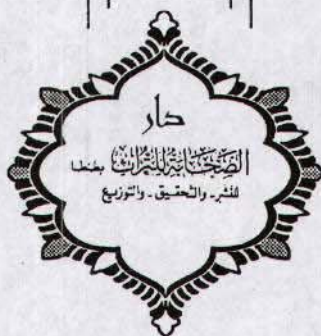 دار
الصَّحَابَة لِلتُّرَاث بطنطا
للنشر - والتحقيق - والتوزيع